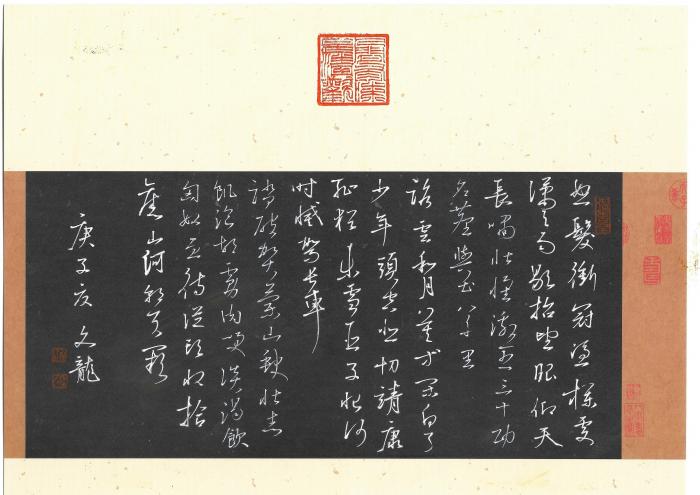 怒髮衝冠憑欄處
瀟瀟雨歇抬望眼仰天
長嘯壯懷激烈三十功
名塵與土八千里
路雲和月莫等閒白了
少年頭空悲切靖康
恥猶未雪臣子恨何
時滅駕長車
踏破賀蘭山缺壯志
飢餐胡虜肉笑談渴飲
匈奴血待從頭收拾
舊山河朝天闕
庚子夏文龍